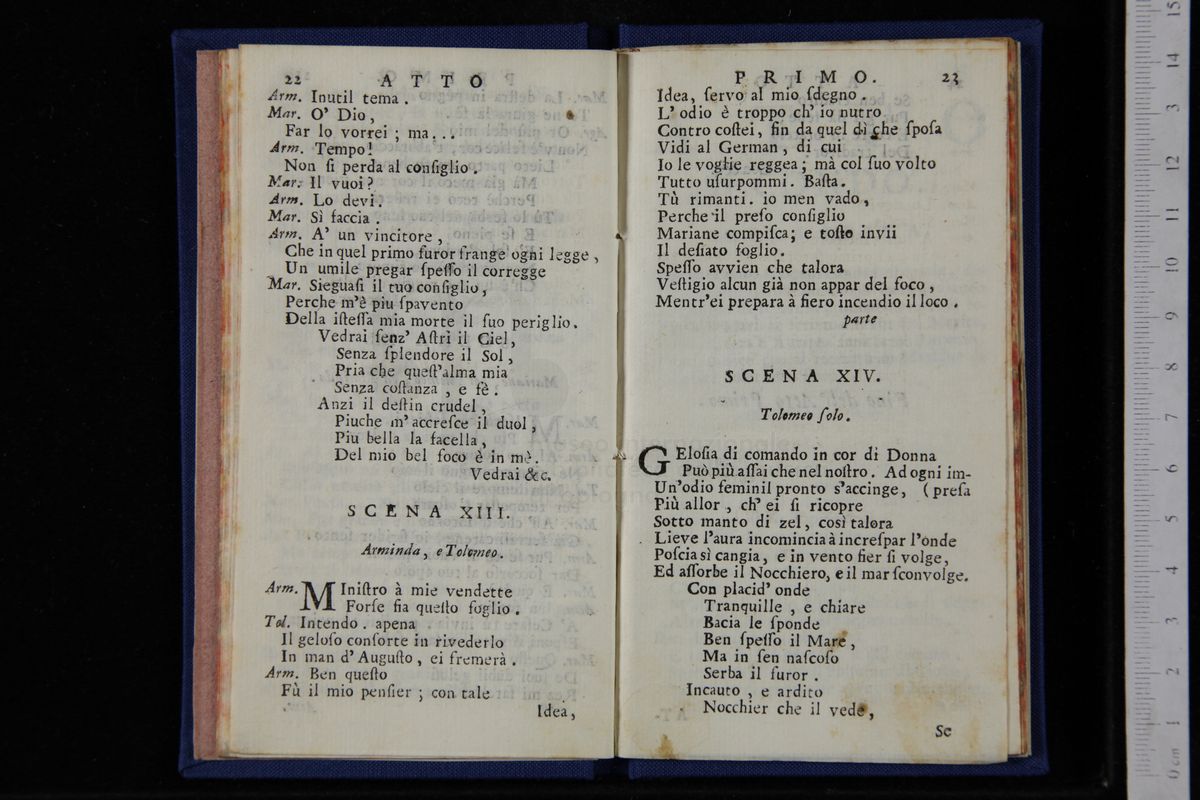 22 ATTO
Arm. Inutil tema.
Mar. O' Dio,
Far lo vorrei ; ma...
Arm. Tempo!
Non ſi perda al conſiglio.
Mar. Il vuoi?
Arm. Lo devi.
Mar. Sì faccia.
Arm. A' un vincitore,
Che in quel primo furor frange ogni legge,
Un umile pregar ſpeſſo il corregge
Mar. Sieguaſi il tuo conſiglio,
Perche m'è piu ſpavento
Della iſteſſa mia morte il ſuo periglio.
Vedrai ſenz' Aſtri il Ciel,
Senza ſplendore il Sol,
Pria che queſt'alma mia
Senza coſtanza, e fè.
Anzi il deſtin crudel,
Piuche m'accreſce il duol,
Piu bella la facella,
Del mio bel foco è in mè.
Vedrai &c.
SCENA XIII.
Arminda, e Tolomeo.
Arm. MIniſtro à mie vendette
Forſe fia queſto foglio.
Tol. Intendo. apena
Il geloſo conſorte in rivederlo
In man d' Auguſto, ei fremerà.
Arm. Ben queſto
Fù il mio penſier ; con tale
Idea,
PRIMO. 23
Idea, ſervo al mio ſdegno.
L' odio è troppo ch' io nutro
Contro coſtei, fin da quel dì che ſpoſa
Vidi al German, di cui
Io le voglie reggea ; mà col ſuo volto
Tutto uſurpommi. Baſta.
Tù rimanti. io men vado,
Perche il preſo conſiglio
Mariane compiſca; e toſto invii
Il deſiato foglio.
Speſſo avvien che talora
Veſtigio alcun già non appar del foco,
Mentr'ei prepara à fiero incendio il loco.
parte
SCENA XIV.
Tolomeo ſolo.
GEloſia di comando in cor di Donna
Può più aſſai che nel noſtro. Ad ogni im-
Un'odio feminil pronto s'accinge, (preſa
Più allor, ch' ei ſi ricopre
Sotto manto di zel, così talora
Lieve l'aura incomincia à increſpar l'onde
Poſcia sì cangia, e in vento fier ſi volge,
Ed aſſorbe il Nocchiero, e il mar ſconvolge.
Con placid' onde
Tranquille, e chiare
Bacia le ſponde
Ben ſpeſſo il Mare,
Ma in ſen naſcoſo
Serba il furor.
Incauto, e ardito
Nocchier che il vede,
Se